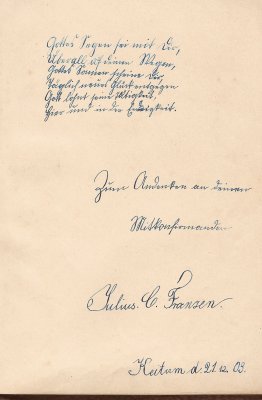 Gottes Segen sei mit Dir,
Überall auf deinen Wegen,
Gottes Sonne scheine Dir,
Täglich neues Glück entgegen
Gott lohnt jede
Hier und in der Ewigkeit.
Zum Andenken an deinen
Mitkonfirmanden
Julius. C. Franzen.
Keitum d 21 12. 03.